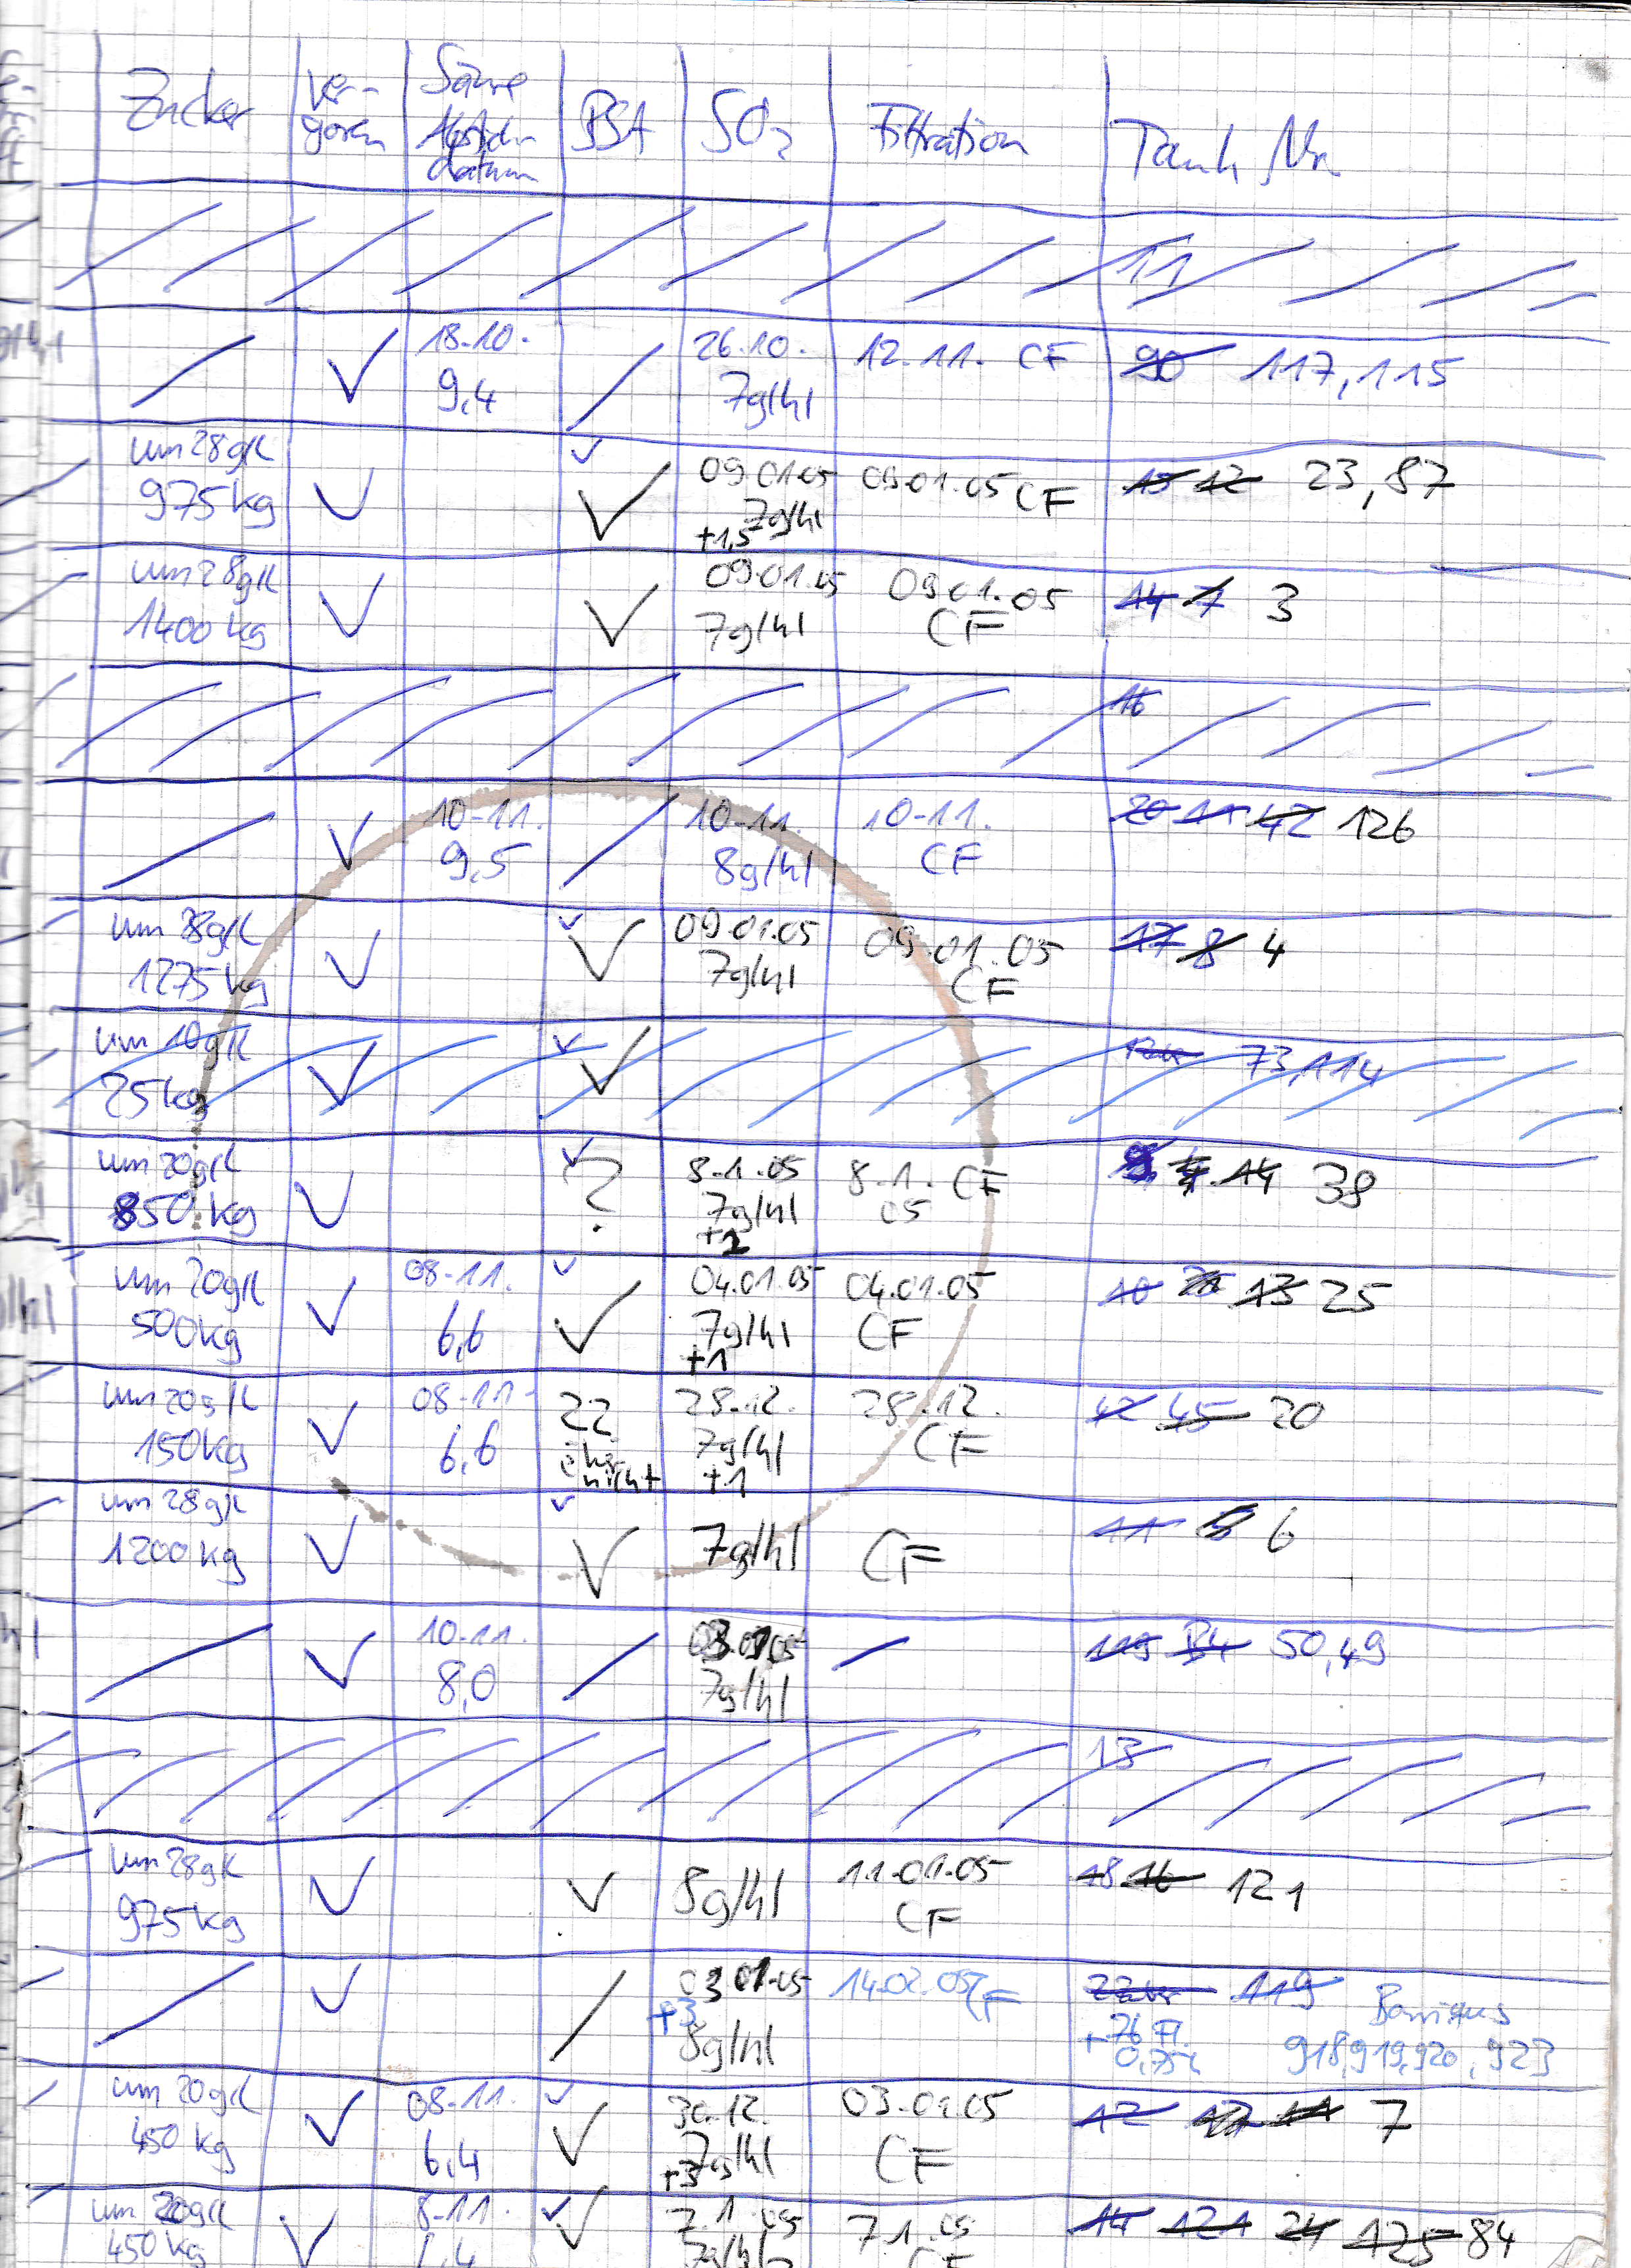 Zucker ver- Säure BSA SO₂ Filtration Tank Nr.
goren Abstich-
datum
11
18.10. 26.10. 12.11. CF 90 117, 115
9,4 7g/hl
um 28g/l
975kg 09.01.05 09.01.05 CF 15 12 23, 87
7g/hl
+1,5
um 28g/l 09.01.05 09.01.05 14 7 3
1400kg 7g/hl CF
16
10.11. 10.11. 10.11. 20 11 42 126
9,5 8g/hl CF
um 28g/l 09.01.05 09.01.05 17 8 4
1275kg 7g/hl CF
um 10g/l 73, 114
25kg
um 20g/l ? 8.1.05 8.1. CF 14 38
850kg 7g/hl 05
+2
um 20g/l 08.11. 04.01.05 04.01.05 10 13 25
500kg 6,6 7g/hl CF
+1
um 20g/l 08.11. 22 28.12. 28.12. 42 45 20
150kg 6,6 eher 7g/hl CF
nicht +1
um 28g/l 11 6
1200kg 7g/hl CF
10.11. 7g/hl 119 50, 49
8,0
13
um 28g/l 8g/hl 11.01.05 18 16 121
975kg CF
03.01.05 14.02.05 CF 119 Barriques
+3 +76 Fl.
8g/hl 0,75l 918, 919, 920, 923
um 20g/l 08.11. 30.12. 03.01.05 12 11 7
450kg 6,4 7g/hl CF
+3
um 20g/l 8.11. 7.1.05 7.1.05 14 121 24 125 84
450kg 7g/hl CF